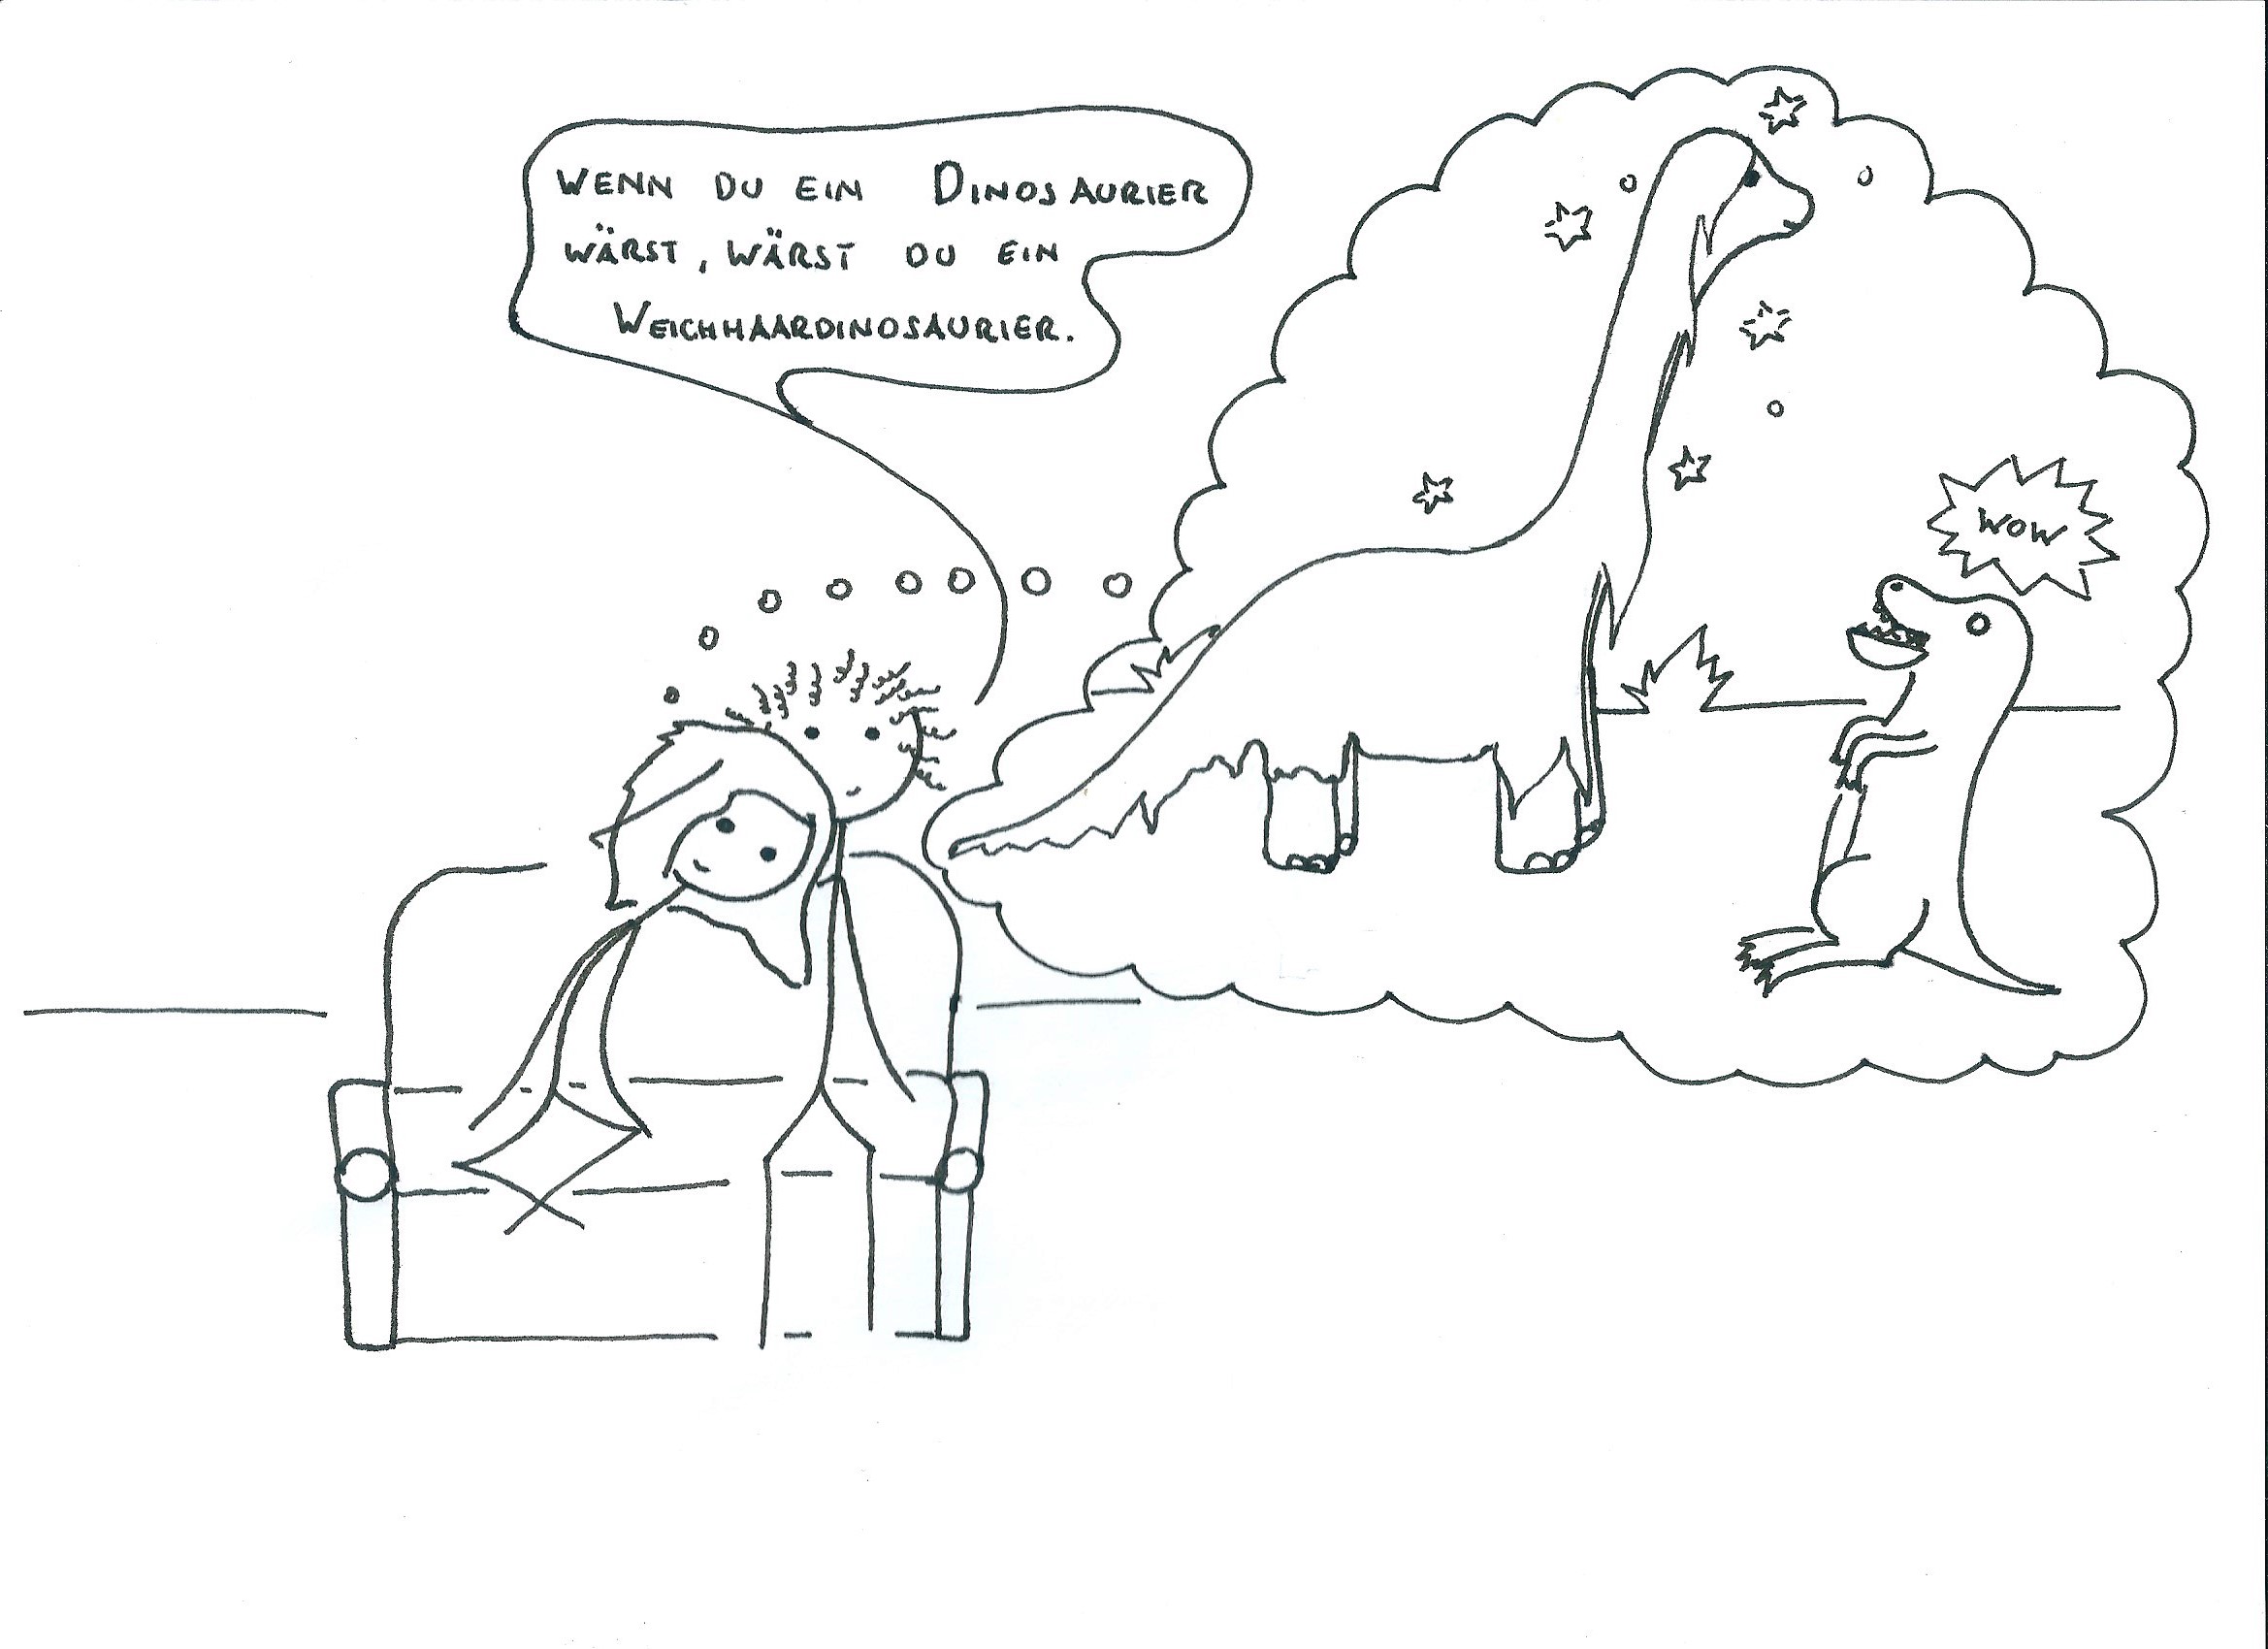 WENN DU EIN DINOSAURIER
WÄRST, WÄRST DU EIN
WEICHHAARDINOSAURIER.
WOW